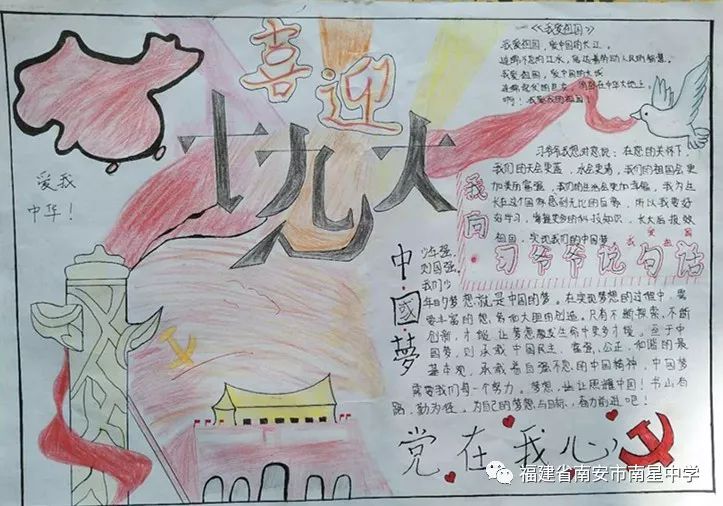 喜迎
十九大
爱我
中华！
《我爱祖国》
我爱祖国，爱中国的长江，
我爱祖国，爱中国的大地
啊！我爱我的祖国！
习爷爷我想对您说：在您的关怀下，
我们的天会更蓝，水会更清，我们的祖国会更
加美丽富强，我们的生活会更加幸福，我为生
长在这个国家感到无比的自豪，所以我要好
好学习，掌握更多的科技知识，长大后报效
祖国，实现我们的中国梦
我向
习爷爷说句话
中國夢
少年强，
则国强。
我们少
年的梦想就是中国的梦。在实现梦想的过程中，需
要丰富的想象和大胆的创造。只有不断探索，不断
创新，才能让梦想激发生命中更多才能。至于中
国梦，则承载中国民主，富强，公正，和谐的最
基本观，承载着自强不息的中国精神，中国梦
需要我们每一个努力。梦想，让思耀中国！书山有
路，勤为径。为自己的梦想与目标，奋力前进吧！
党在我心
福建省南安市南星中学